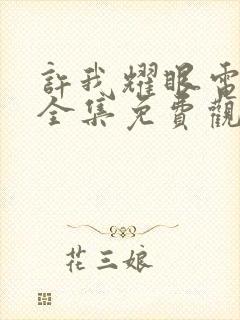 許我耀眼電
全集免費觀
花三娘